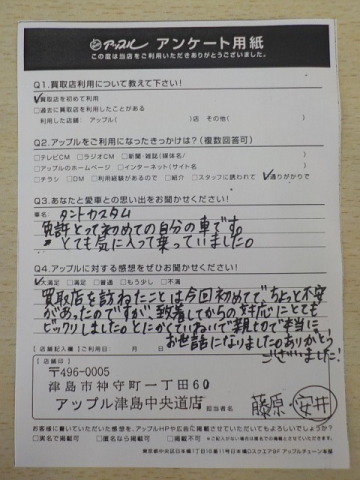 アップル アンケート用紙
この度は当店をご利用いただきありがとうございました。
Q1.買取店利用について教えて下さい!
☑買取店を初めて利用
□過去に買取店を利用したことがある
利用した店舗/ アップル( )店 その他( )
Q2.アップルをご利用になったきっかけは?(複数回答可)
□テレビCM □ラジオCM □新聞・雑誌(媒体名/ )
□アップルのホームページ □インターネット(サイト名 )
□チラシ □DM □利用経験があるので □紹介 □スタッフに誘われて ☑通りがかりで
Q3.あなたと愛車との思い出をお聞かせください!
車名: タントカスタム
免許とって初めての自分の車です。
とても気に入って乗っていました。
Q4.アップルに対する感想をぜひお聞かせください!
☑大満足 □満足 □普通 □もう少し □不満
買取店を訪ねたことは今回初めてで、ちょっと不安
があったのですが、到着してからの対応にとても
ビックリしました。とにかくていねいで親切で本当に
お世話になりました。ありがとう
ございました!
[店舗記入欄] [ご利用日: 月 日]
[店舗印]
〒496-0005
津島市神守町一丁目60
アップル津島中央道店
担当者名 藤原・安井
お客様に書いていただいた感想を、アップルHPや広告に掲載させていただいてもよろしいでしょうか?
□実名で掲載可 □匿名なら掲載可 □掲載不可 ※ご記入がない場合は匿名での掲載とさせていただきます。
東京都中央区日本橋1丁目16番11号日本橋Dスクエア9F アップルチェーン本部